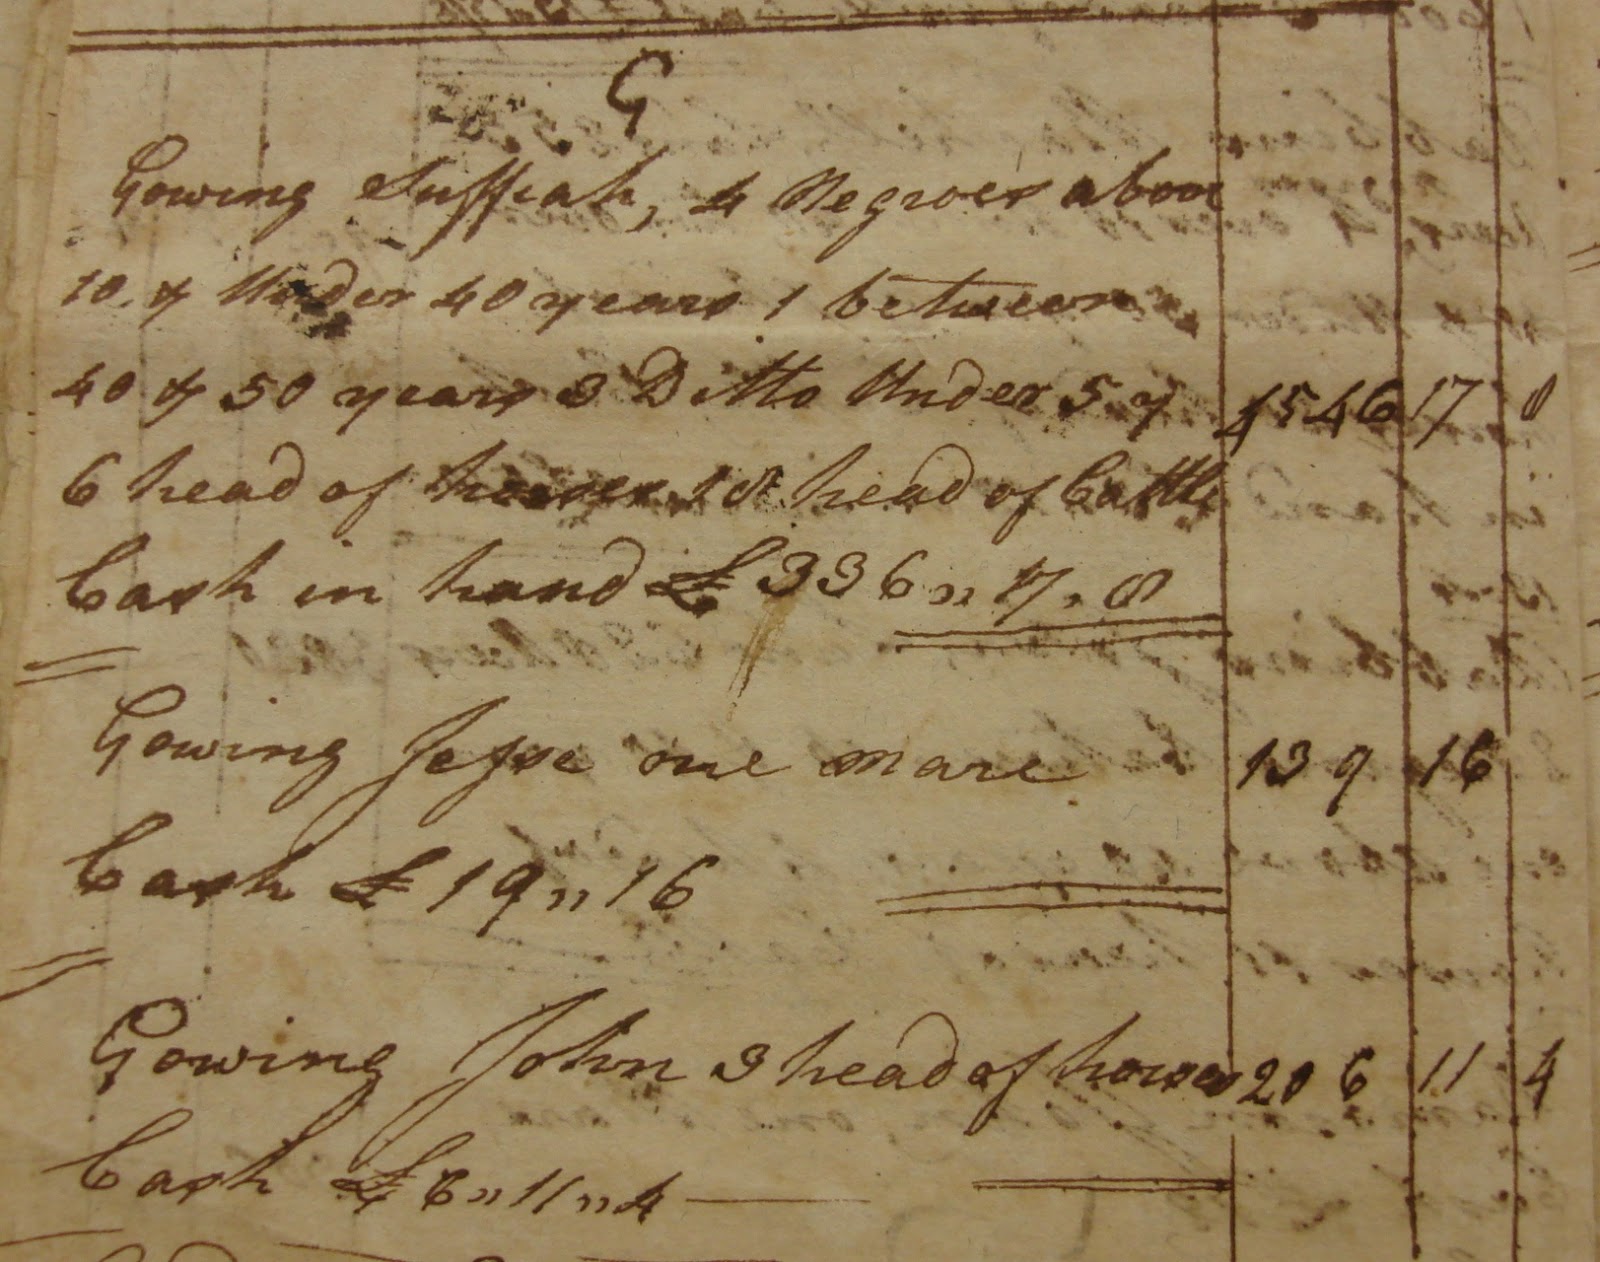 G
Gowing Suffiah, 4 Negroes above
10 & Under 40 years 1 between
40 & 50 years 3 Ditto Under 5 y 4546 17 8
6 head of horses 18 head of Cattle
Cash in hand £336 " 17 " 8
Gowing Jesse one mare 139 16
Cash £19 " 16
Gowing John 3 head of horses 206 11 4
Cash £6 " 11 " 4